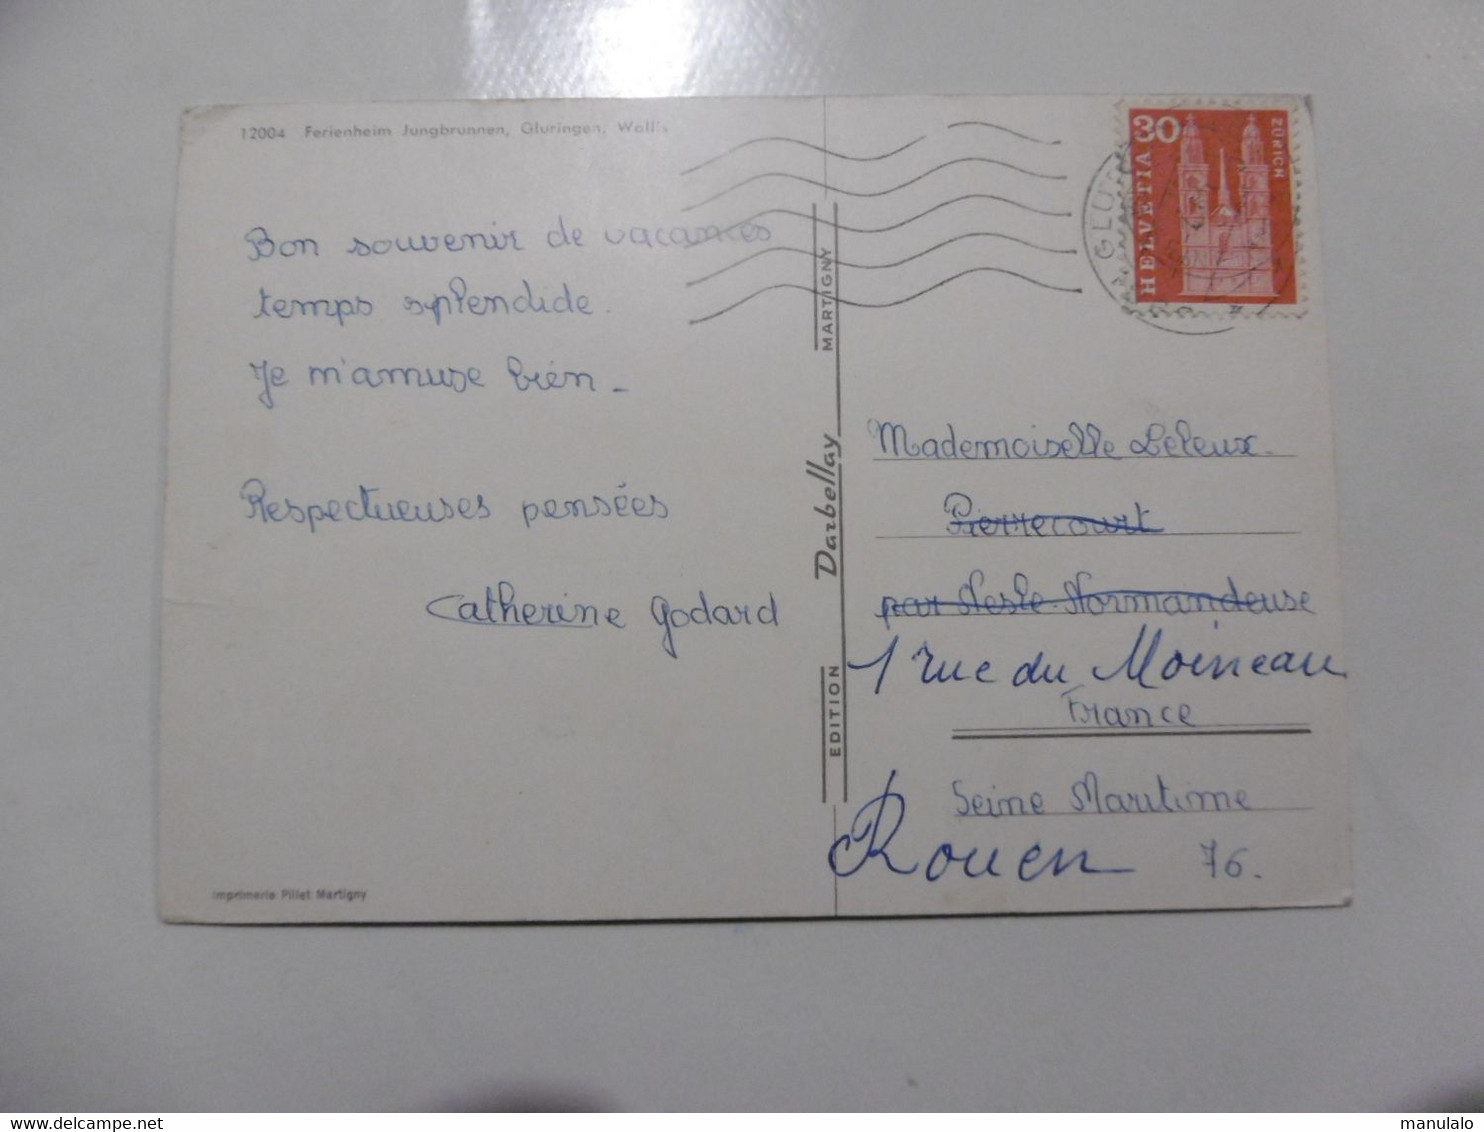 12004 Ferienheim Jungbrunnen, Gluringen, Wallis
Bon souvenir de vacances
temps splendide.
Je m'amuse bien -
Respectueuses pensées
Catherine Godard
Imprimerie Pillet Martigny
EDITION Darbellay MARTIGNY
30
HELVETIA
ZÜRICH
GLU
Mademoiselle Leleux.
Pierrecourt
par Nesle-Normandeuse
1 rue du Moineau
France
Seine Maritime
Rouen 76.
manulalo